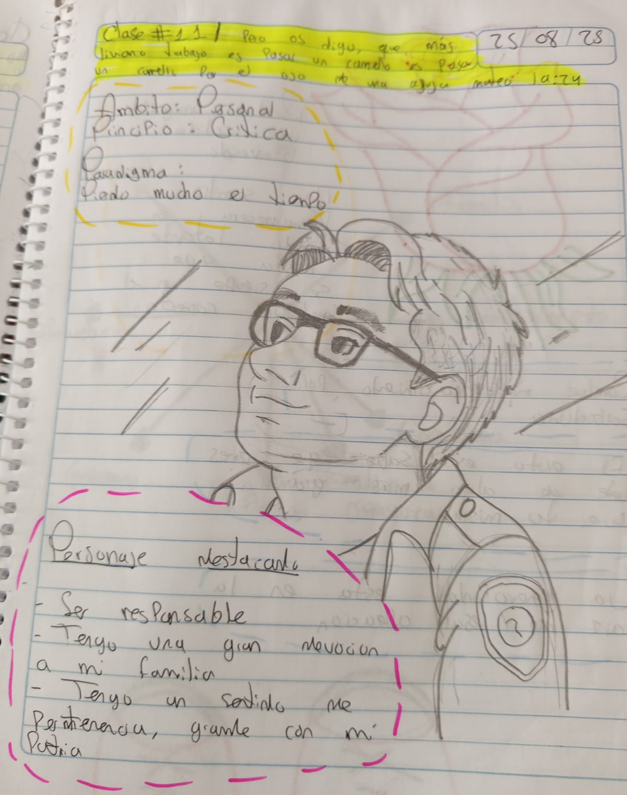 Clase #11 / Pero os digo, que, más
liviano trabajo es Pasar un camello es Pasar
un camello Por el ojo de una aguja mateo 19:24
25 / 08 / 25
Ámbito: Pasonal
Principio: Critica
Paradigma:
Piedo mucho el tiempo
Personaje destacado
- Ser responsable
- Tengo una gran devocion
a mi familia
- Tengo un sentido de
Pertenencia, grande con mi
Patria
2